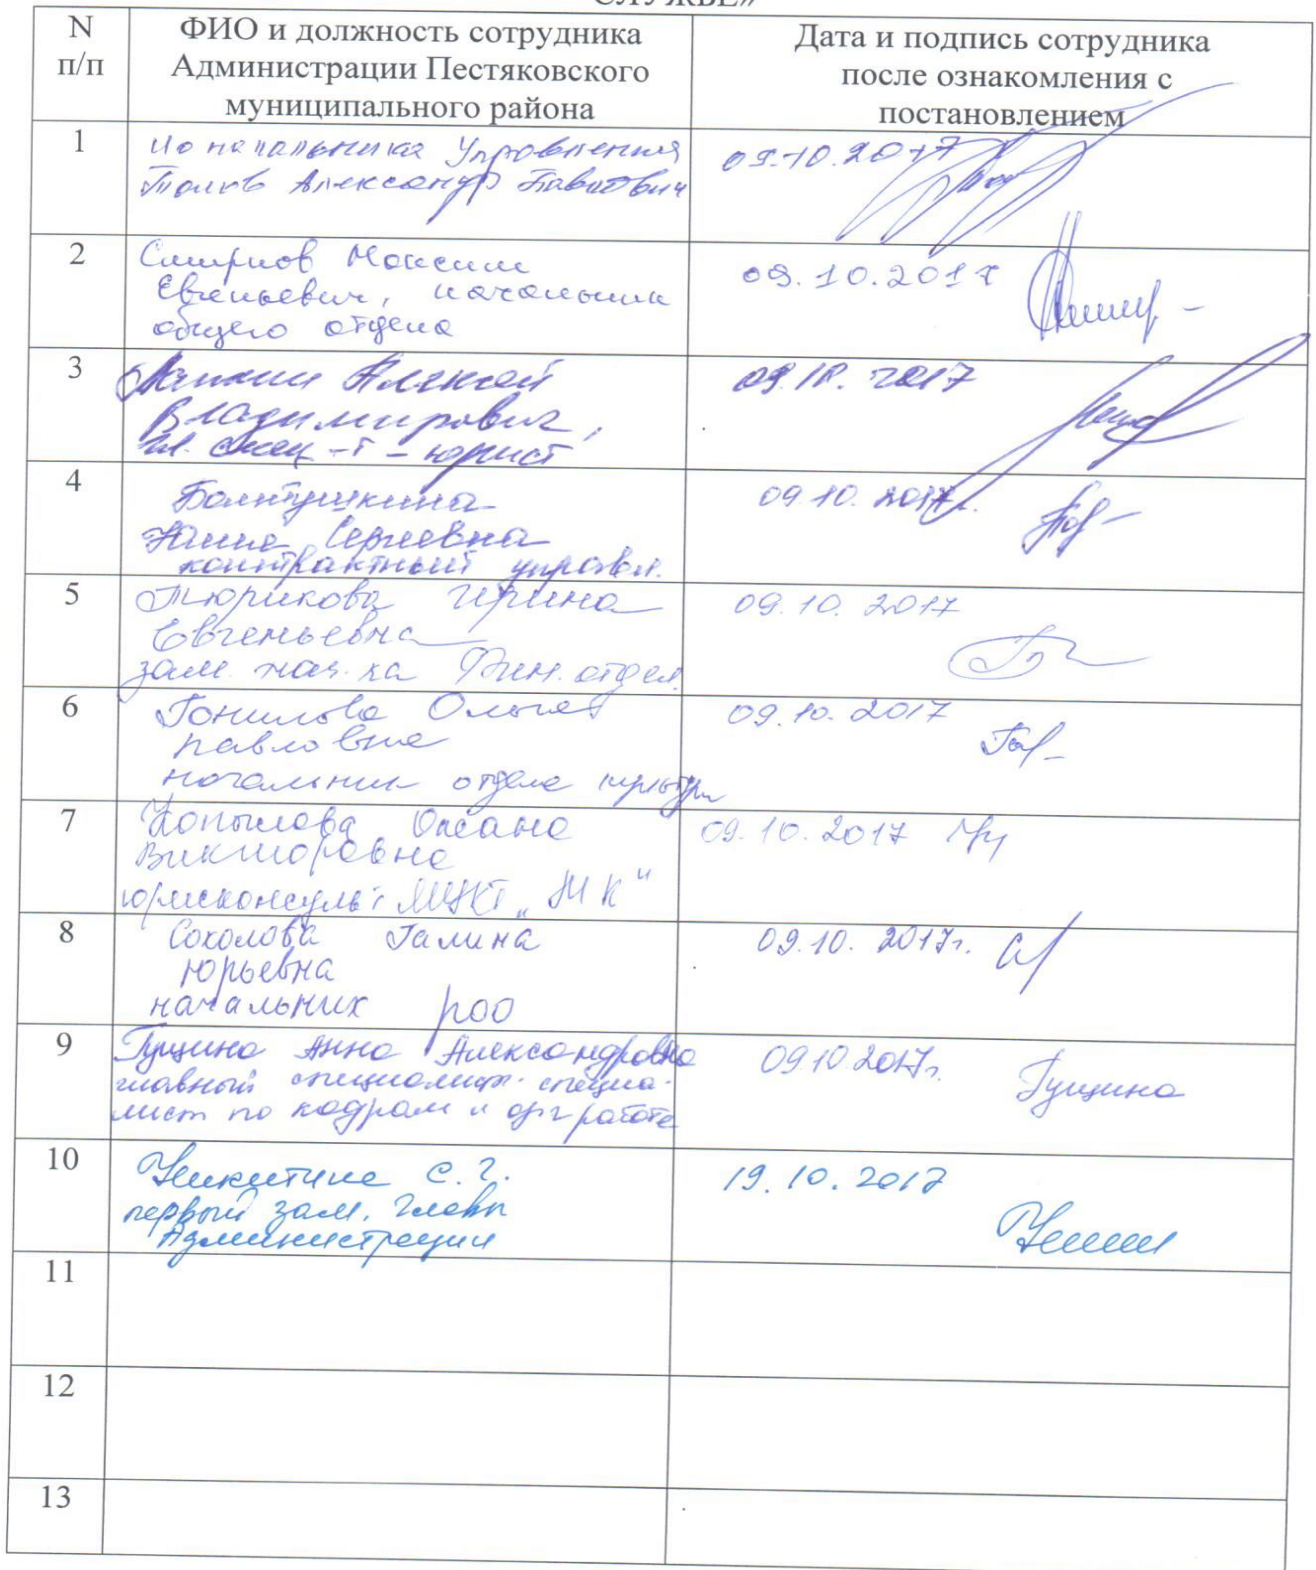 СЛУЖБЕ»
N п/п
ФИО и должность сотрудника
Администрации Пестяковского
муниципального района
Дата и подпись сотрудника
после ознакомления с
постановлением
1
Ио начальника Управления
Александр Павлович
09.10.2017
2
Смирнов Максим
Евгеньевич, начальник
общего отдела
09.10.2017
3
Алексей
Владимирович,
гл. спец-т - юрист
09.10.2017
4
Болтушкина
Сергеевна
контрактный управл.
09.10.2017г.
5
Тюрикова Ирина
Евгеньевна
зам. нач-ка Фин. отдел
09.10.2017
6
Ольга
Павловна
начальник отдела культуры
09.10.2017
7
Копылова Оксана
Викторовна
юрисконсульт
09.10.2017
8
Соколова Галина
Юрьевна
начальник РОО
09.10.2017г.
9
Гущина Анна Александровна
главный специалист- специа-
лист по кадрам и орг работе
09.10.2017г.
Гущина
10
Никитина С.Г.
первый зам. главы
Администрации
19.10.2017
11
12
13